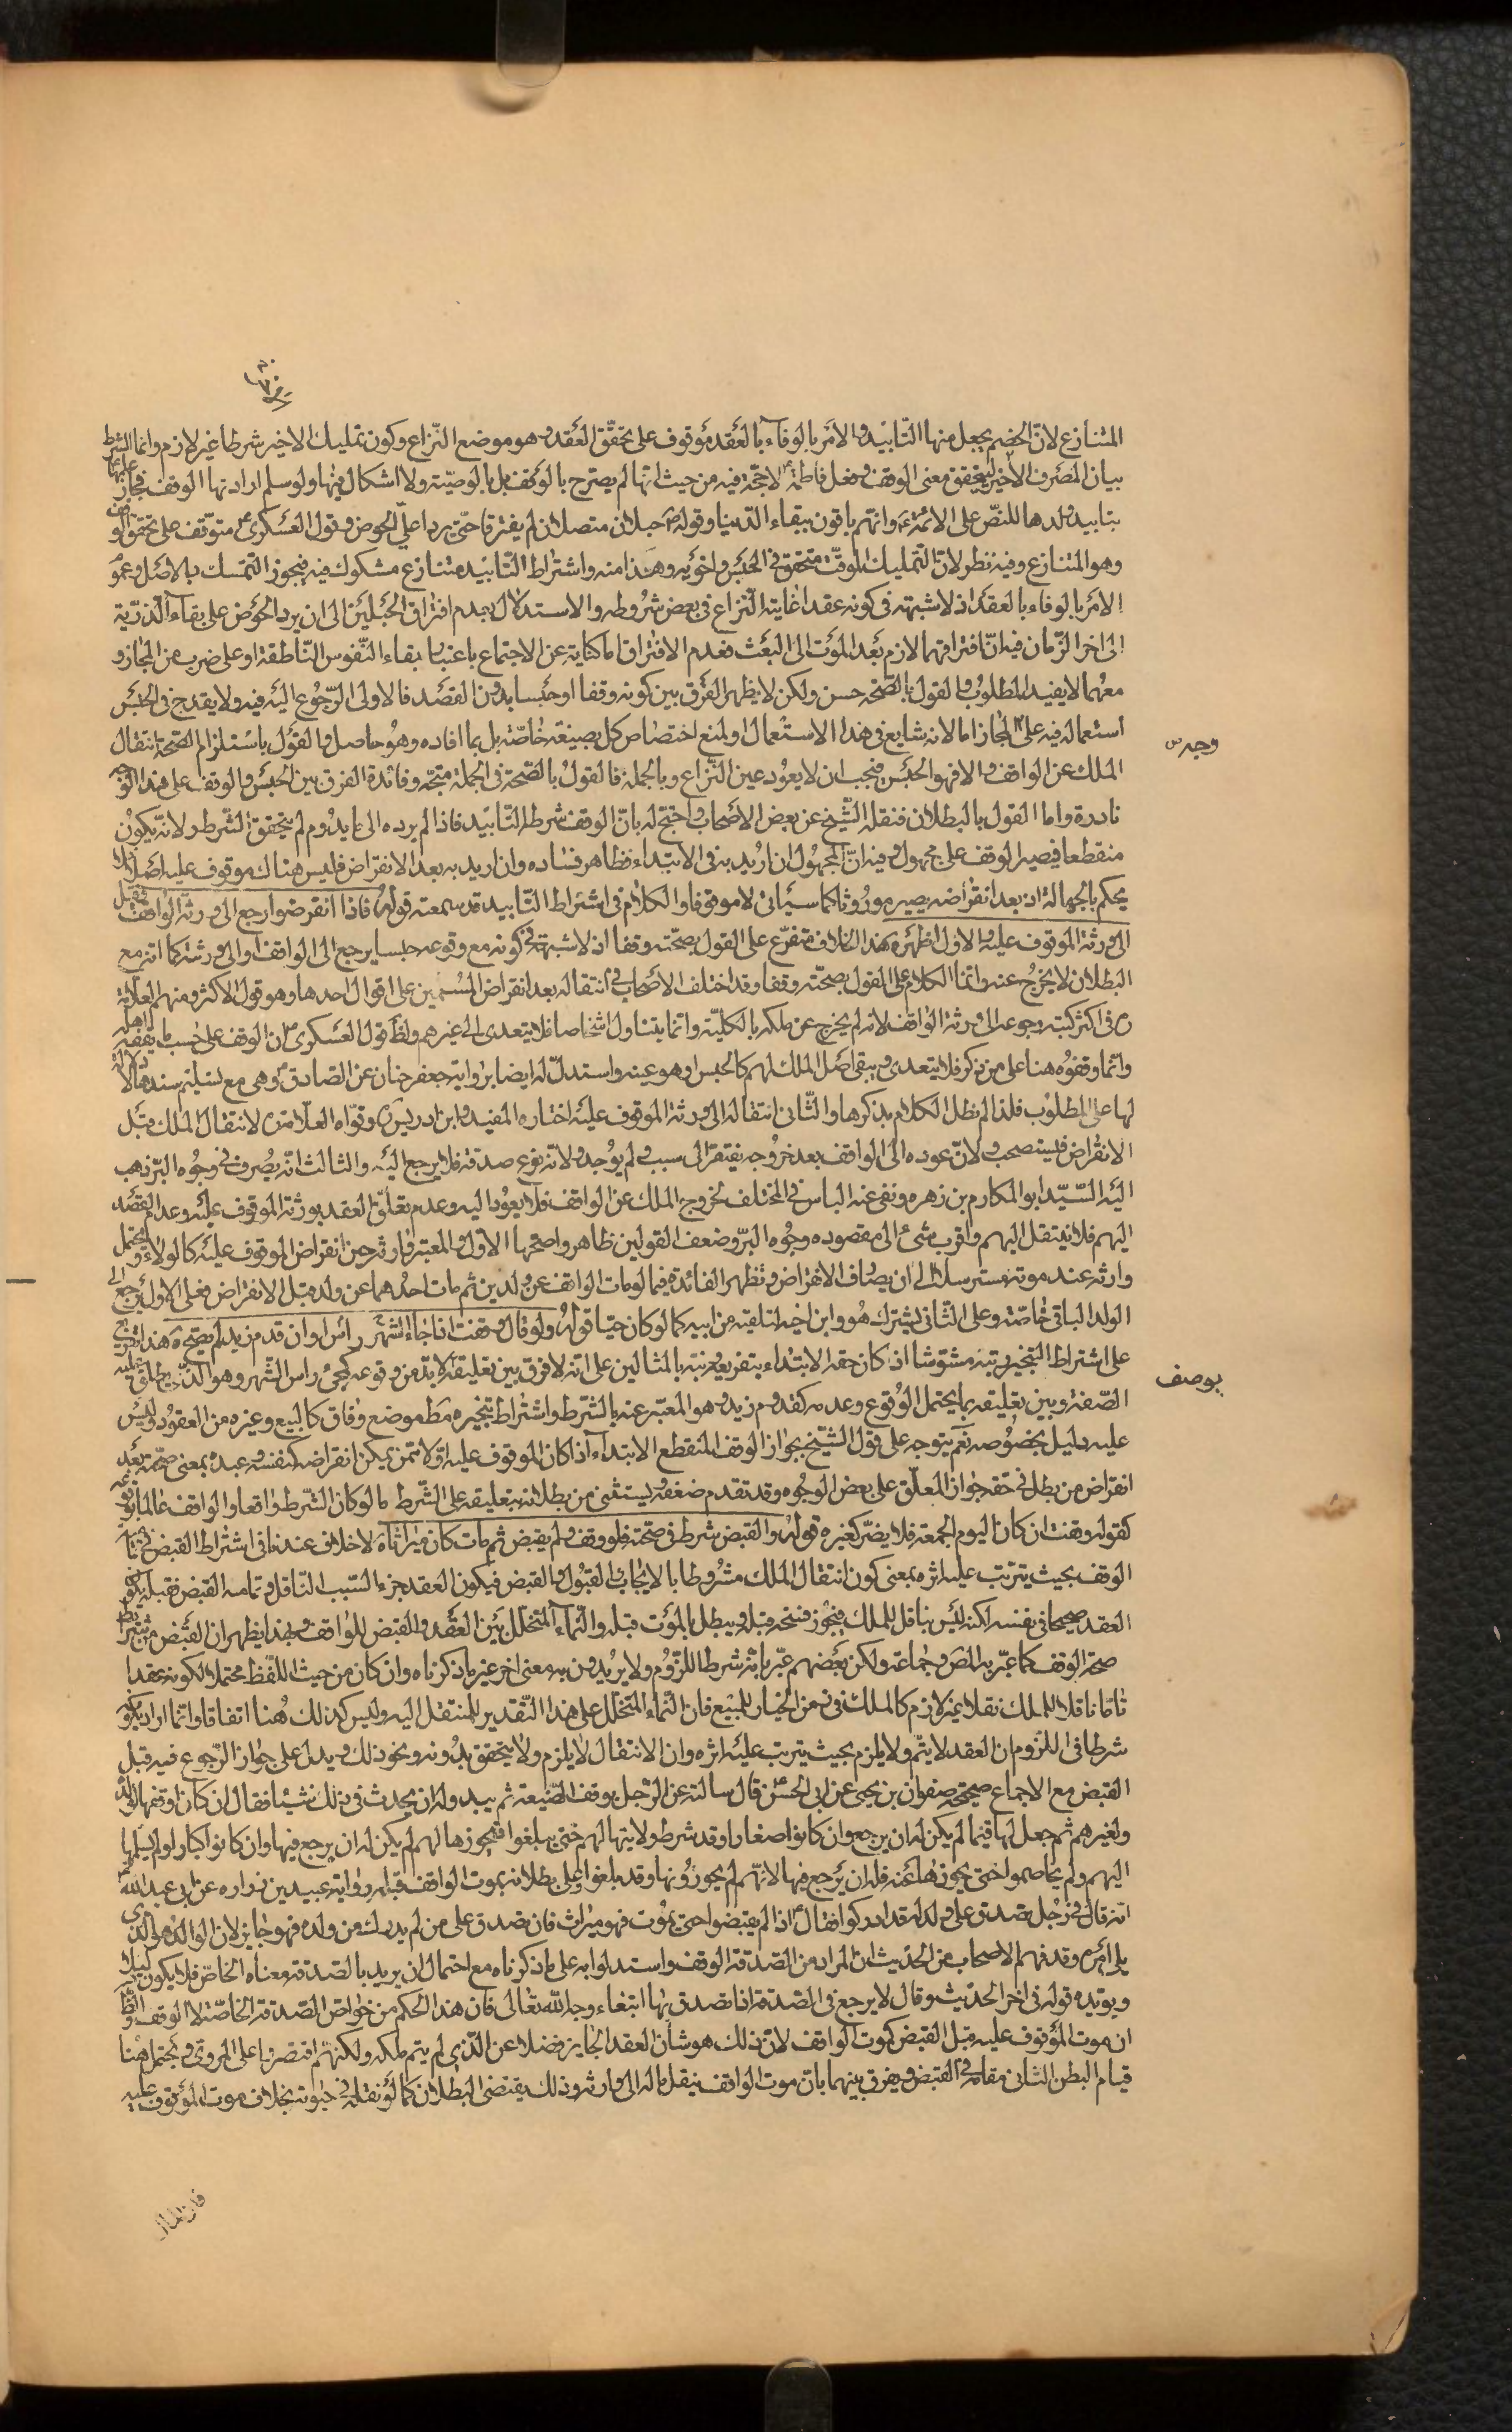 المتنازع لانّ الخصم يجعل منها التّابيد والامر بالوفآء بالعقد موقوف على تحقّق العقد وهو موضع النّزاع وكون تمليك الاخير شرطا غير لازم وانما الشرط
بيان المصرف الاخير ليتحقق معنى الوقف وفعل فاطمة ع لا حجّة فيه من حيث انّها لم يصرّح بالوقف بل بالوصيّة ولا اشكال فيها ولو سلم ارادتها الوقف فجاز علمها
بتابيد ولدها للنصّ على الائمّة ع وانّهم باقون ببقاء الدّنيا وقوله ص حبلان متصلان لم يفترقا حتّى يردا علىّ الحوض وقول العسكرى ع متوقّف على تحقق الوقف
وهو المتنازع وفيه نظر لانّ التّمليك الموقّت متحقق فى الحبس واخويه وهذا منه واشتراط التّابيد متنازع مشكوك فيه فيجوز التمسّك بالاصل وعموم
الامر بالوفاء بالعقد اذ لا شبهة فى كونه عقدا غايته النّزاع فى بعض شروطه والاستدلال بعدم افتراق الحبلين الى ان يردا الحوض على بقاء الذّرّية
الى اخر الزّمان فيه انّ افتراقهما لازم بعد الموت الى البعث فعدم الافتراق اما كناية عن الاجتماع باعتبار بقاء النّفوس النّاطقة او على ضرب من المجاز و
معهما لا يفيد المطلوب والقول بالصّحّة حسن ولكن لا يظهر الفرق بين كونه وقفا او حبسا بدون القصد فالاولى الرّجوع اليه فيه ولا يقدح فى الحبس
استعماله فيه على المجاز اما لانه شايع فى هذا الاستعمال او لمنع اختصاص كل بصيغة خاصّة بل بما افاده وهو حاصل والقول باستلزام الصّحّة انتقال
وجه س
الملك عن الواقف والا فهو الحبس فيجب ان لا يعود عين النّزاع وبالجملة فالقول بالصّحّة فى الجملة متّجه وفائدة الفرق بين الحبس والوقف على هذا الوجه
نادرة واما القول بالبطلان فنقله الشّيخ عن بعض الاصحاب واحتج له بانّ الوقف شرطه التّابيد فاذا لم يرده الى ما يدوم لم يتحقق الشّرط ولانّه يكون
منقطعا فيصير الوقف على مجهول وفيه انّ المجهول ان اريد به فى الابتداء فظاهر فساده وان اريد به بعد الانقراض فليس هناك موقوف عليه اصلا فلا
يحكم بالجهالة اذ بعد انقراضه يصير موروثا كما سيأتى لا موقوفا والكلام فى اشتراط التّابيد قد سمعته قوله فاذا انقرضوا رجع الى ورثة الواقف وقيل
الى ورثة الموقوف عليه والاول اظهر هذا الخلاف متفرّع على القول بصحّته وقفا اذ لا شبهة فى كونه مع وقوعه حبسا يرجع الى الواقف او الى ورثته كما انه مع
البطلان لا يخرج عنه وانّما الكلام على القول بصحّته وقفا وقد اختلف الاصحاب فى انتقاله بعد انقراض المسمّين على اقوال احدها وهو قول الاكثر ومنهم العلّامة
ره فى اكثر كتبه رجوعه الى ورثة الواقف لانه لم يخرج عن ملكه بالكليّة وانّما يتناول اشخاصا فلا يتعدى الى غيرهم ولظ قول العسكرى ع ان الوقف على حسب ما يقفه اهله
وانّما وقفوه هنا على من ذكر فلا يتعدى ويبقى اصل الملك لهم كالحبس او هو عينه واستدلّ له ايضا برواية جعفر بن حنان عن الصّادق ع وهى مع تسليم سندها لا دلالة
لها على المطلوب فلذا لم نطل الكلام بذكرها والثّانى انتقاله الى ورثة الموقوف عليه اختاره المفيد وابن ادريس وقوّاه العلّامة ره لانتقال الملك قبل
الانقراض فيستصحب ولانّ عوده الى الواقف بعد خروجه يفتقر الى سبب ولم يوجد ولانّه نوع صدقة فلا يرجع اليه والثالث انّه يصرف فى وجوه البرّ ذهب
اليه السّيّد ابو المكارم بن زهره ونفى عنه الباس فى المختلف لخروج الملك عن الواقف فلا يعود اليه وعدم تعلّق العقد بورثة الموقوف عليه وعدم القصد
اليهم فلا ينتقل اليهم واقرب شىء الى مقصوده وجوه البرّ وضعف القولين ظاهر واصحّها الاول والمعتبر وارثه حين انقراض الموقوف عليه كالولاء ويحتمل
وارثه عند موته مسترسلا الى ان يصادف الانقراض وتظهر الفائدة فيما لو مات الواقف عن ولدين ثم مات احدهما عن ولد قبل الانقراض فعلى الاول يرجع الى
الولد الباقى خاصّة وعلى الثّانى يشترك هو وابن اخيه لتلقيه من ابيه كما لو كان حيّا قوله ولو قال وقفت اذا جاء راس الشّهر او ان قدم زيد لم يصحّ هذا تفريع
على اشتراط التّنجيز رتبه مشوّشا اذ كان حقّه الابتداء بتفريعه ونبّه بالمثالين على انّه لا فرق بين تعليقه بوصف لا بدّ من وقوعه كمجئ راس الشّهر وهو الذّى يطلق عليه
بوصف
الصّفة وبين تعليقه بما يحتمل الوقوع وعدمه كقدوم زيد وهو المعبّر عنه بالشّرط واشتراط تنجيزه مطلقا موضع وفاق كالبيع وغيره من العقود وليس
عليه دليل بخصوصه نعم يتوجه على قول الشّيخ بجواز الوقف المنقطع الابتداء اذا كان الموقوف عليه اوّلا ممّن يمكن انقراضه كنفسه وعبده بمعنى صحّته بعد
انقراض من بطل فى حقّه جواز المعلّق على بعض الوجوه وقد تقدم ضعفه ويستثنى من بطلانه بتعليقه على الشّرط ما لو كان الشّرط واقعا والواقف عالما بوقوعه
كقوله وقفت ان كان اليوم الجمعة فلا يضرّ كغيره قوله والقبض شرط فى صحّته فلو وقف ولم يقبض ثم مات كان ميراثا لا خلاف عندنا فى اشتراط القبض فى تمام
الوقف بحيث يترتب عليه اثره بمعنى كون انتقال الملك مشروطا بالايجاب والقبول والقبض فيكون العقد جزء السّبب النّاقل وتمامه القبض فقبله يكون
العقد صحيحا فى نفسه لكنه ليس بناقل للملك فيجوز فسخه قبله ويبطل بالموت قبله والنّماء المتخلّل بين العقد والقبض للواقف وبهذا يظهر ان القبض من شرايط
صحة الوقف كما عبّر به المص وجماعة ولكن بعضهم عبّر بانّه شرط اللّزوم ولا يريدون به معنى اخر غير ما ذكرناه وان كان من حيث اللّفظ محتملا لكونه عقدا
تاما ناقلا للملك نقلا غير لازم كالملك فى زمن الخيار للبيع فان النّماء المتخلّل على هذا التّقدير للمنتقل اليه وليس كذلك هنا اتفاقا وانّما اراد بكونه
شرطا فى اللّزوم ان العقد لا يتمّ ولا يلزم بحيث يترتب عليه اثره وان الانتقال لا يلزم ولا يتحقق بدونه ونحو ذلك ويدل على جواز الرّجوع فيه قبل
القبض مع الاجماع صحيحة صفوان بن يحيى عن ابى الحسن ع قال سالته عن الرّجل يوقف الضّيعة ثم يبدو له ان يحدث فى ذلك شيئا فقال ان كان اوقفها لولده
ولغيرهم ثم جعل لها قيّما لم يكن له ان يرجع وان كانوا صغارا وقد شرط ولايتها لهم حتى يبلغوا فيحوزها لهم لم يكن له ان يرجع فيها وان كانوا كبارا ولم يسلّمها
اليهم ولم يخاصموا حتى يحوزوها عنه فله ان يرجع فيها لانّهم لم يحوزونها وقد بلغوا وعلى بطلانه بموت الواقف قبله رواية عبيد بن زراره عن ابى عبد الله ع
انّه قال فى رجل تصدق على ولد له قد ادركوا فقال ع اذا لم يقبضوا حتى يموت فهو ميراث فان تصدق على من لم يدرك من ولده فهو جايز لان الوالد هو الذى
يلى امره وقد فهم الاصحاب من الحديث ان المراد من الصّدقة الوقف واستدلوا به على ما ذكرناه مع احتمال ان يريد بالصّدقة معناه الخاصّ فلا يكون دليلا
ويؤيده قوله فى اخر الحديث وقال لا يرجع فى الصّدقة اذا تصدق بها ابتغاء وجه الله تعالى فان هذا الحكم من خواصّ الصّدقة الخاصّة لا الوقف والظ
ان موت الموقوف عليه قبل القبض كموت الواقف لانّ ذلك هو شأن العقد الجايز فضلا عن الّذى لم يتم ملكه ولكنهم اقتصروا على المروىّ ويحتمل هنا
قيام البطن الثانى مقامه فى القبض ويفرق بينهما بانّ موت الواقف ينقل ماله الى وارثه وذلك يقتضى البطلان كما لو نقله فى حيوته بخلاف موت الموقوف عليه
فان المال